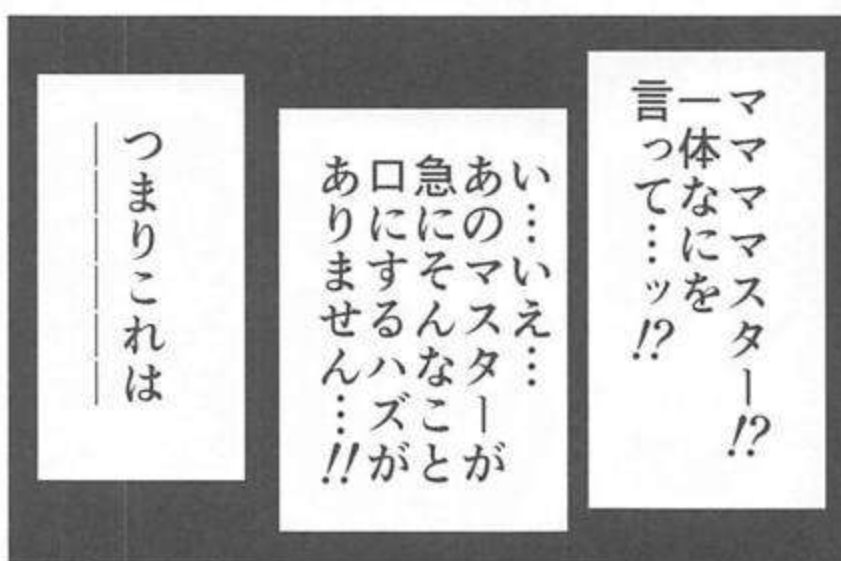 マママママスター!?
一体なにを
言って…ッ!?
い…いえ…
あのマスターが
急にそんなこと
口にするハズが
ありません…!!
つまりこれは
――――――